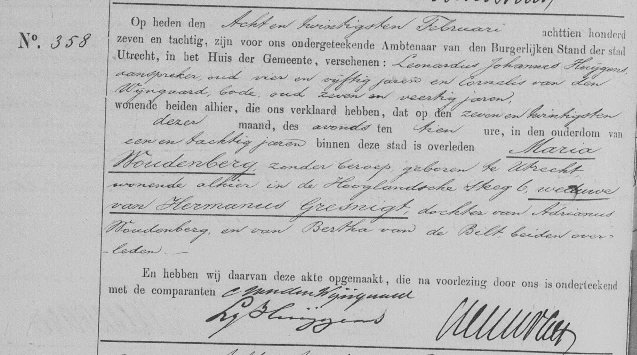 N°. 358
Op heden den Acht en twintigsten Februari achttien honderd
zeven en tachtig, zijn voor ons ondergeteekende Ambtenaar van den Burgerlijken Stand der stad
Utrecht, in het Huis der Gemeente, verschenen: Leonardus Johannes Huijgens,
aanspreker, oud vier en vijftig jaren en Cornelis van den
Wijngaard, bode, oud zeven en veertig jaren,
wonende beiden alhier, die ons verklaard hebben, dat op den zeven en twintigsten
dezer maand, des avonds ten tien ure, in den ouderdom van
een en tachtig jaren binnen deze stad is overleden Maria
Woudenberg, zonder beroep, geboren te Utrecht
wonende alhier in de Hooglandsche Steeg 6, weduwe
van Hermanus Gresnigt, dochter van Adrianus
Woudenberg, en van Bertha van de Belt beiden over-
leden. —
En hebben wij daarvan deze akte opgemaakt, die na voorlezing door ons is onderteekend
met de comparanten C van den Wijngaard
L J Huijgens